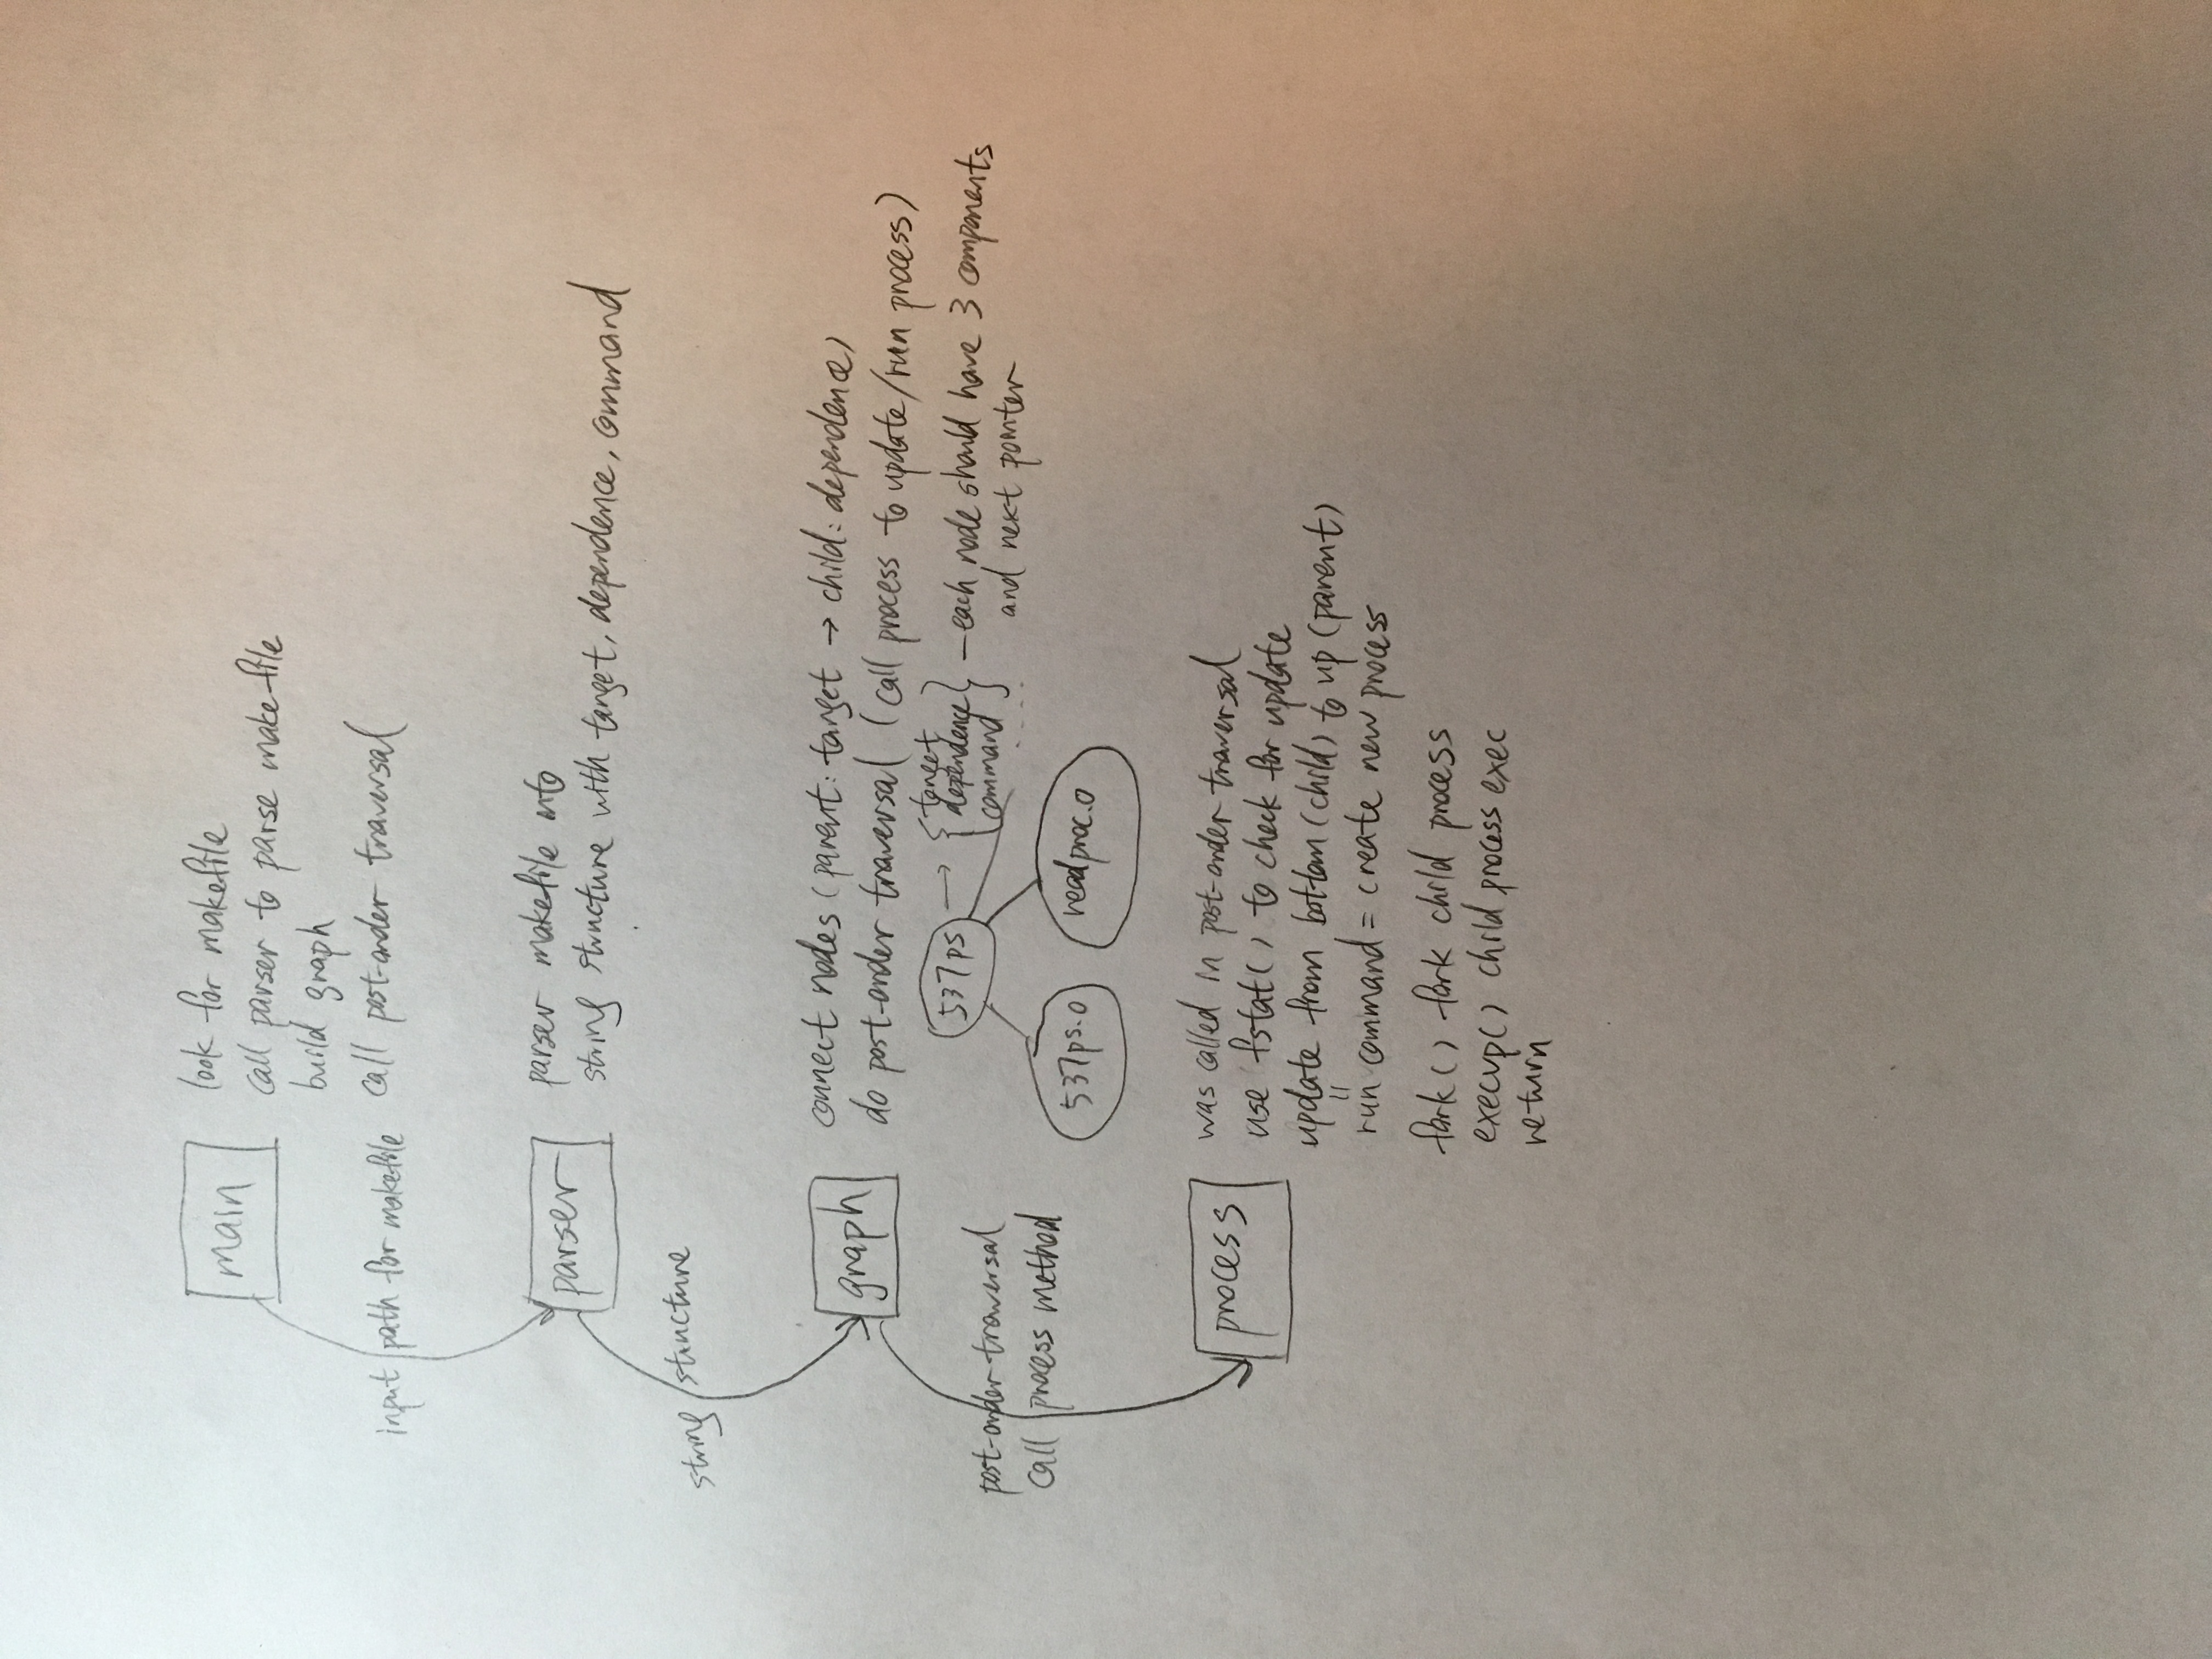 main
look for makefile
call parser to parse makefile
build graph
call post-order traversal
input path for makefile
parser
parser makefile into
string structure with target, dependence, command
string structure
graph
connect nodes (parent: target → child: dependence)
do post-order traversal (call process to update/run process)
537ps → { target
dependence
command } — each node should have 3 components
and next pointer
....
post-order traversal
call process method
537ps.o
readproc.o
process
was called in post-order traversal
use fstat() to check for update
update from bottom (child) to up (parent)
"
run command = create new process
fork() fork child process
execvp() child process exec
return